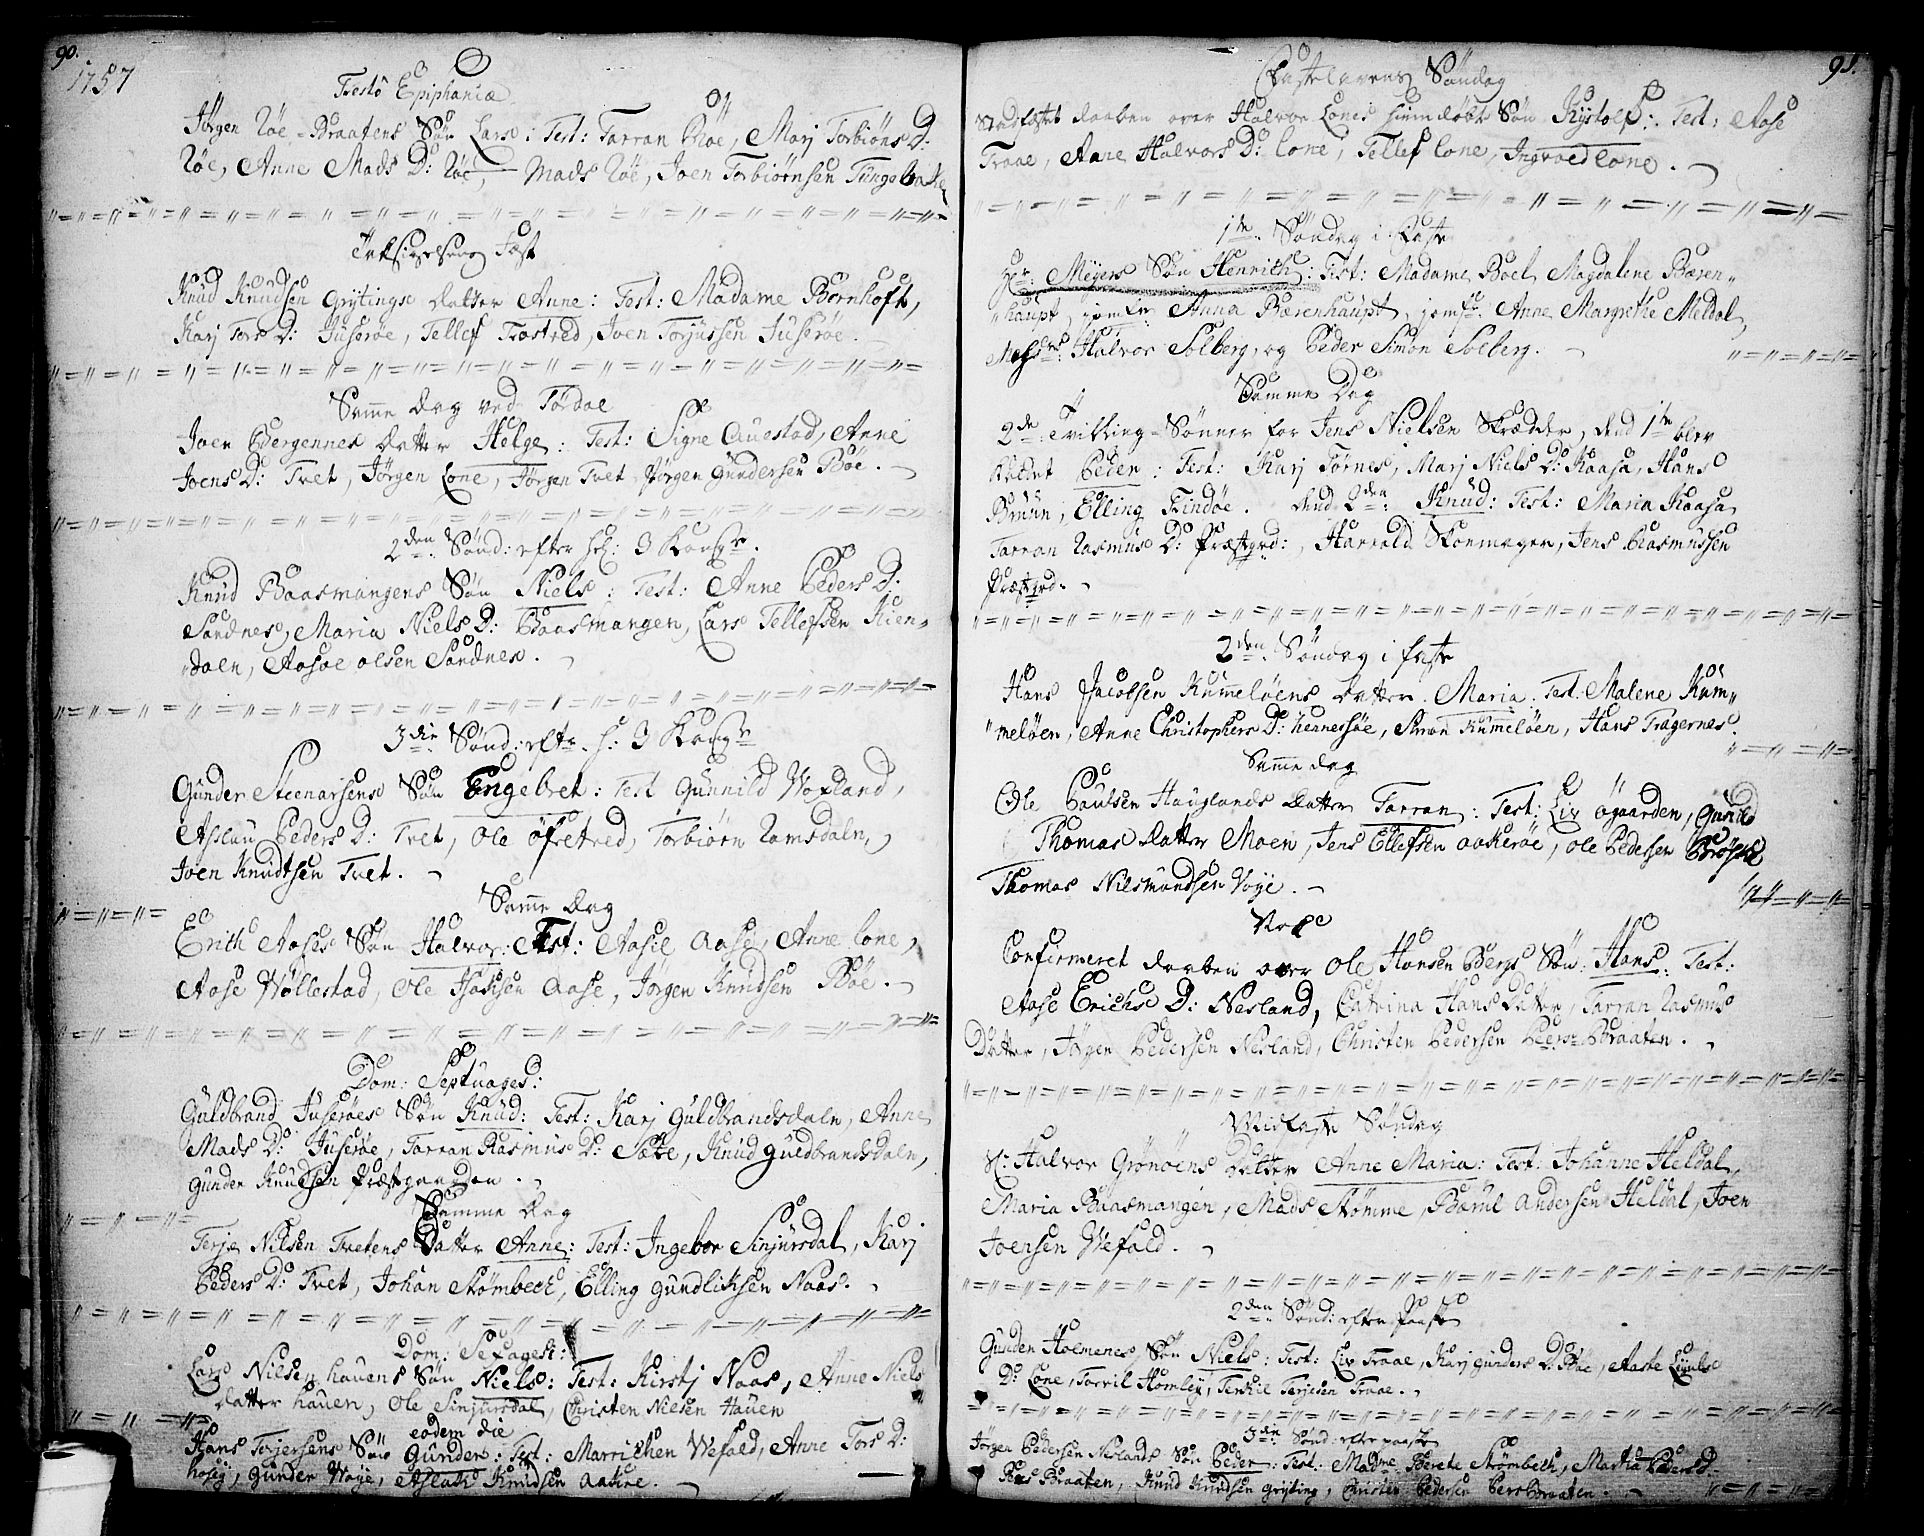 90.
1757
Festô Epiphaniæ
Jörgen Röe-Braatens Sön Lars: Test: Tarran Böe, Marj Torbiöns D:
Röe, Anne Mads D: Röe, Mads Röe, Joen Torbiörnsen Tungebakke
Knud Knudsen Grytings datter Anne: Test: Madame Bernhoft,
Karj Tors D: Juseröe, Tellef Trostved, Joen Torjussen Juseröe.
Samme dag ved Tördal
Joen Bergennes datter Helge: Test: Signe Avestad, Anne
Joens D: Tvet, Jörgen Lone, Jörgen Tvet, Jörgen Gundersen Böe.
2den Sönd: efter H: 3 Kong:
Knud Baasmangens Sön Niels: Test: Anne Peders D:
Sandnes, Maria Niels D: Baasmangen, Lars Tellefsen Kien-
dalen, Aasoe olsen Sandnes.
3die Sönd: efter H: 3 Kong:
Gunder Steenarsens Sön Engebret: Test Gunnild Woxland,
Aslau Peders D: Tvet, Ole Öfretved, Torbiörn Ramsdalen,
Joen Knudtsen Tvet.
Samme dag
Erich Aases Sön Halvor: Test: Aasie Aase, Anne Lone,
Aase Wöllestad, Ole Isaksen Aase, Jörgen Knudsen Böe.
Dom: Septuages:
Guldbrand Juseröes Sön Knud: Test: Karj Guldbrandsdalen, Anne
Mads D: Juseröe, Tarran Rasmus D: Sætre, Knud Guldbrandsdalen,
Gunder Knudsen Præstgaarden.
Samme Dag
Terje Nilsen Tvetens Datter Anne: Test: Ingebor Sinjursdal, Karj
Peders D: Tvet, Johan Strömbech, Elling Gundliksen Naas.
Dom: Sexagesi:
Lars Nilsen hauens Sön Niels: Test: Kirstj Naas, Anne Niels
datter hauen, Ole Sinjursdal, Christen Nielsen Hauen
eodem die
Hans Torjersens Sön Gunder: Test: Marrichen Wefald, Anne Tors D:
Gunder Woye, Aslach Knudsen Aatne.
91.
Fastelavens Söndag
Stadfæstet daaben over Halvor Lones hiemdöbt Sön Kystolf: Test: Aase
Traae, Anne Halvors D: Lone, Tellef Lone, Ingvoed Lone.
1ste Söndag i Faste
Hr: Meyers Sön Henrich: Test: Madame Boel Magdalene Bæren-
haupt, jomfr: Anna Bærenhaupt, jomfr: Anne Margrethe Meldal,
Halvor Solberg, og Peder Simon Solberg.
Samme Dag
2de Tvilling-Sönner for Jens Nielsen Skrædder, dend 1ste blev
kaldet Peder: Test: Karj Törnes, Marj Niels D: Kaasa, Hans
Bruun, Elling Findöe. dend 2den Knud: Test: Maria Kaasa,
Tarran Rasmus D: Præstgrd:, Harrald Skoemager, Jens Rasmussen
Præstgrd.
2den Söndag i faste
Hans Jacobsen Kummelöens datter Maria: Test: Malene Kum-
melöen, Anne Christophers D: hennessöe, Simon Kumelöen, Hans Tragernes.
Samme dag
Ole Poulsen Hauglands datter Tarran: Test: Liv Ögaarden, Gunild
Thomas datter Moen, Jens Ellefsen Aakeröe, Ole Pedersen
Thomas Nilsmundsen Voye.
Confirmeret daaben over Ole Hansen Bergs Sön: Hans: Test:
Aase Erichs D: Nesland, Catrina Hans datter, Tarran Rasmus
Datter, Jörgen Pedersen Nesland, Christen Pedersen Peers-Braaten.
Midfaste Söndag
Halvor Grönöens datter Anne Maria: Test: Johanne Heldal,
Maria Baasmangen, Mads Strömme, Baarul Andersen Heldal, Joen
Joensen Wefald.
2den Sönd: efter Paaske
Gunder Holmenes Sön Niels: Test: Liv Traae, Karj Gunders D: Böe, Aaste
D: Lone, Torvil Homley, Terkil Terjesen Traae.
3die Sönd: efter paaske
Jörgen Pedersen Neslands Sön Peder: Test: Madme Berete Strömbech, Martha Peders D:
Braaten, Knud Knudsen Gryting, Christen Pedersen Persbraaten.